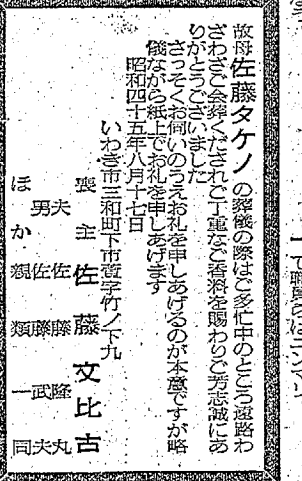 故母佐藤タケノの葬儀の際はご多忙中のところ遠路わ
ざわざご会葬くだされご丁重なご香料を賜わりご芳志誠にあ
りがとうございました
さっそくお伺いのうえお礼を申しあげるのが本意ですが略
儀ながら紙上でお礼を申しあげます
昭和四十五年八月十七日
いわき市三和町下市萱字竹ノ下九
喪主 佐藤文比古
夫 佐藤隆丸
男 佐藤武夫
ほか親類一同